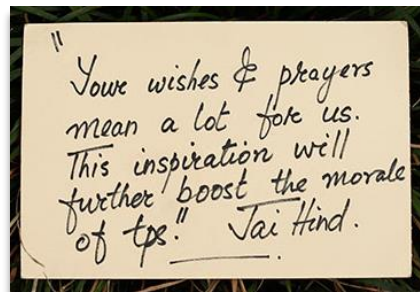 "Your wishes & prayers
mean a lot for us.
This inspiration will
further boost the morale
of tps." Jai Hind.